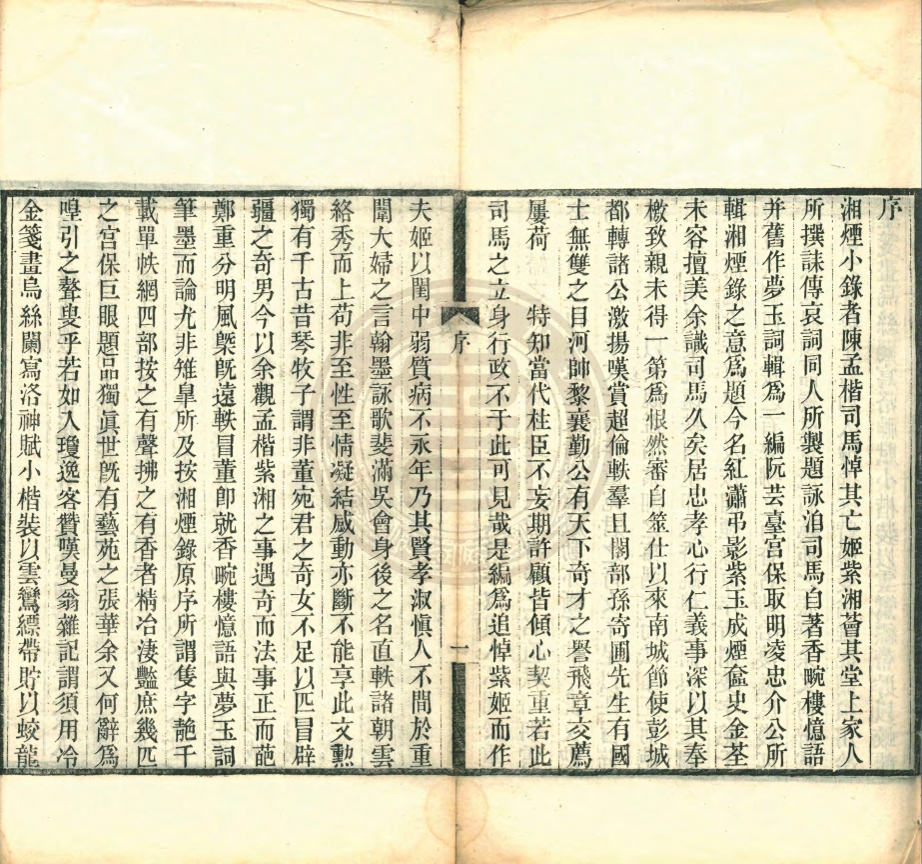 序
湘煙小錄者陳孟楷司馬悼其亡姬紫湘薈其堂上家人
所撰誄傳哀詞同人所製題詠洎司馬自著香畹樓憶語
并舊作夢玉詞輯爲一編阮芸臺宮保取明凌忠介公所
輯湘煙錄之意爲題今名紅瀟弔影紫玉成煙奩史金荃
未容擅美余識司馬久矣居忠孝心行仁義事深以其奉
檄致親未得一第爲恨然審自筮仕以來南城節使彭城
都轉諸公激揚嘆賞超倫軼羣且閣部孫寄圃先生有國
士無雙之目河帥黎襄勤公有天下奇才之譽飛章交薦
屢荷　特知當代柱臣不妄期許顧皆傾心契重若此
司馬之立身行政不于此可見哉是編爲追悼紫姬而作
序
一
夫姬以閨中弱質病不永年乃其賢孝淑愼人不間於重
闈大婦之言翰墨詠歌斐滿吳會身後之名直軼諸朝雲
絡秀而上苟非至性至情凝結感動亦斷不能享此文勲
獨有千古昔琴牧子謂非董宛君之奇女不足以匹冒辟
疆之奇男今以余觀孟楷紫湘之事遇奇而法事正而葩
鄭重分明風槩旣遠軼冒董卽就香畹樓憶語與夢玉詞
筆墨而論尤非雉皐所及按湘煙錄原序所謂隻字艶千
載單帙網四部按之有聲拂之有香者精冶淒豔庶幾匹
之宮保巨眼題品獨眞世旣有藝苑之張華余又何辭爲
喤引之聲叟乎若如入瓊逸客贊嘆曼翁雜記謂須用冷
金箋畫烏絲闌寫洛神賦小楷裝以雲鸞縹帶貯以蛟龍